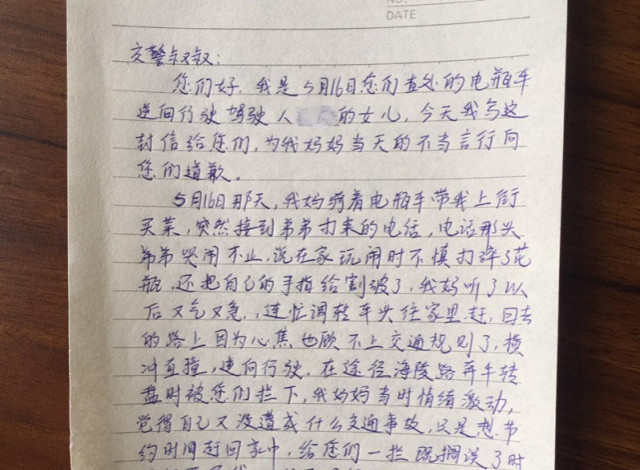 NO.
DATE
交警叔叔:
您们好,我是5月16日您们查处的电瓶车
逆向行驶驾驶人 的女儿,今天我写这
封信给您们,为我妈妈当天的不当言行向
您们道歉。
5月16日那天,我妈骑着电瓶车带我上街
买菜,突然接到弟弟打来的电话,电话那头
弟弟哭闹不止,说在家玩闹时不慎打碎了花
瓶,还把自己的手指给割破了,我妈听了以
后又气又急,连忙调转车头往家里赶,回去
的路上因为心焦也顾不上交通规则了,横
冲直撞,逆向行驶,在途径海陵路奔牛转
盘时被您们拦下,我妈妈当时情绪激动,
觉得自己又没遭成什么交通事故,只是想节
约时间赶回家中,给您们一拦既搁误了时